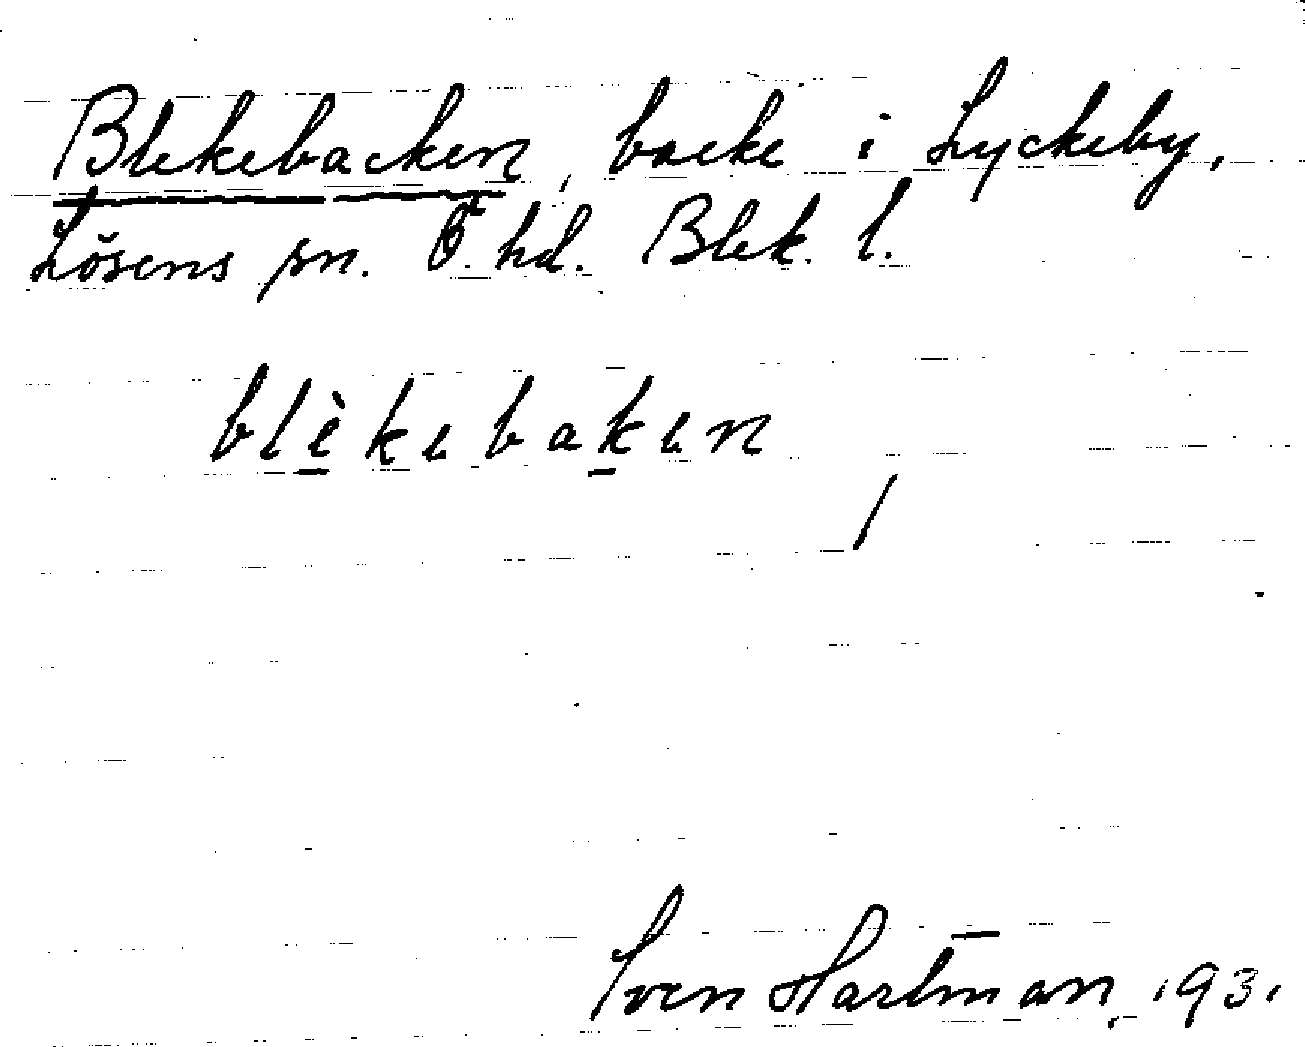 Blekebacken, backe i Lyckeby,
Lösens sn. Ö. hd. Blek. l.
blèkebaken
/
Sven Hartman, 1931